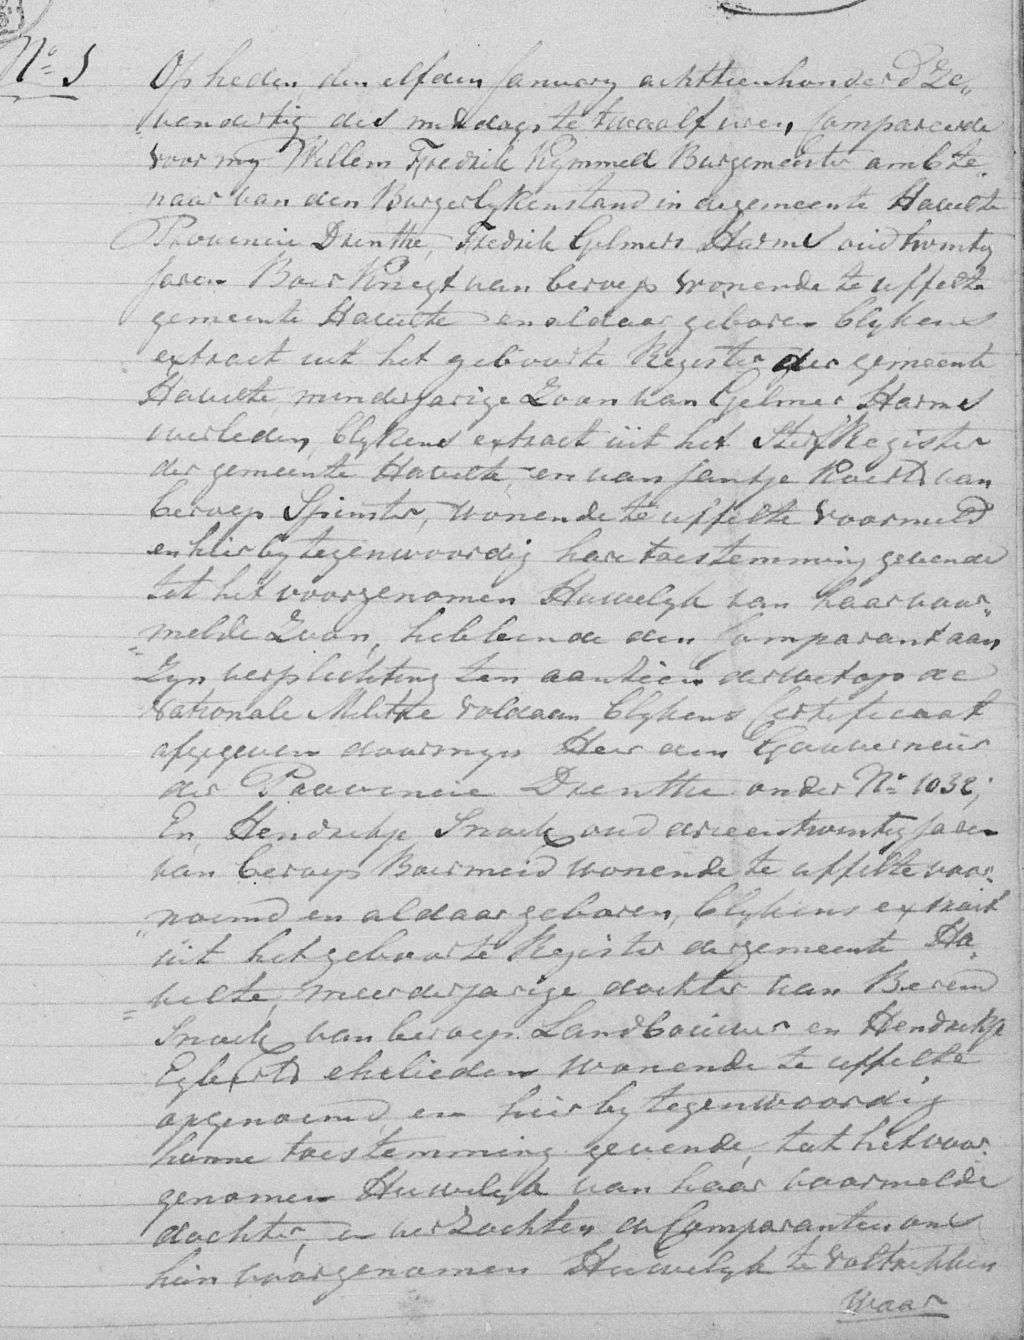 No 5
Op heden den elfden January achttienhonderd Ze„
vendertig des middags te twaalf uren, Compareerde
voor my Willem Fredrik Kymmell Burgemeester ambte„
naar van den Burgerlykenstand in de gemeente Havelte
Provencie Drenthe, Fredrik Gelmers Harms oud twintig
Jaren Boer Knegt van beroep wonende te uffelte
gemeente Havelte en aldaar geboren blykens
extract uit het geboorte Register der gemeente
Havelte, minderjarige Zoon van Gelmer Harms
overleden, blykens extract uit het Sterf Register
der gemeente Havelte en van Jantje Roelfs van
beroep Spinster, wonende te uffelte voormeld
en hierby tegenwoordig hare toestemming gevende
tot het voorgenomen Huwelyk van haar voor„
melde Zoon, hebbende den Comparant aan
Zyn verplichting ten aanzien der wet op de
Nationale Militie voldaan blykens Certificaat
afgegeven door myn Heer den Gouverneur
der Provencie Drenthe onder No 1032;
En Hendrikje Snoek oud drieentwintig Jaren
van beroep Boermeid wonende te uffelte voor„
noemd en aldaar geboren, blykens extract
uit het geboorte Register der gemeente Ha„
velte, meerderjarige dochter van Berend
Snoek van beroep Landbouwer en Hendrikje
Egberts ehelieden wonende te uffelte
opgenoemd, en hierby tegenwoordig
hunne toestemming gevende, tot het voor„
genomen Huwelyk van haar voormelde
dochter, en verzochten de Comparanten ons
hun voorgenomen Huwelyk te voltrekken
Waar